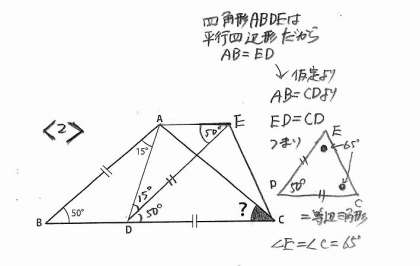 四角形ABDEは
平行四辺形だから
AB=ED
↓仮定より
AB=CDより
ED=CD
つまり
E
65°
D
50°
C
=等辺三角形
∠E=∠C=65°
<2>
A
E
15°
50°
15°
50°
50°
?
B
D
C